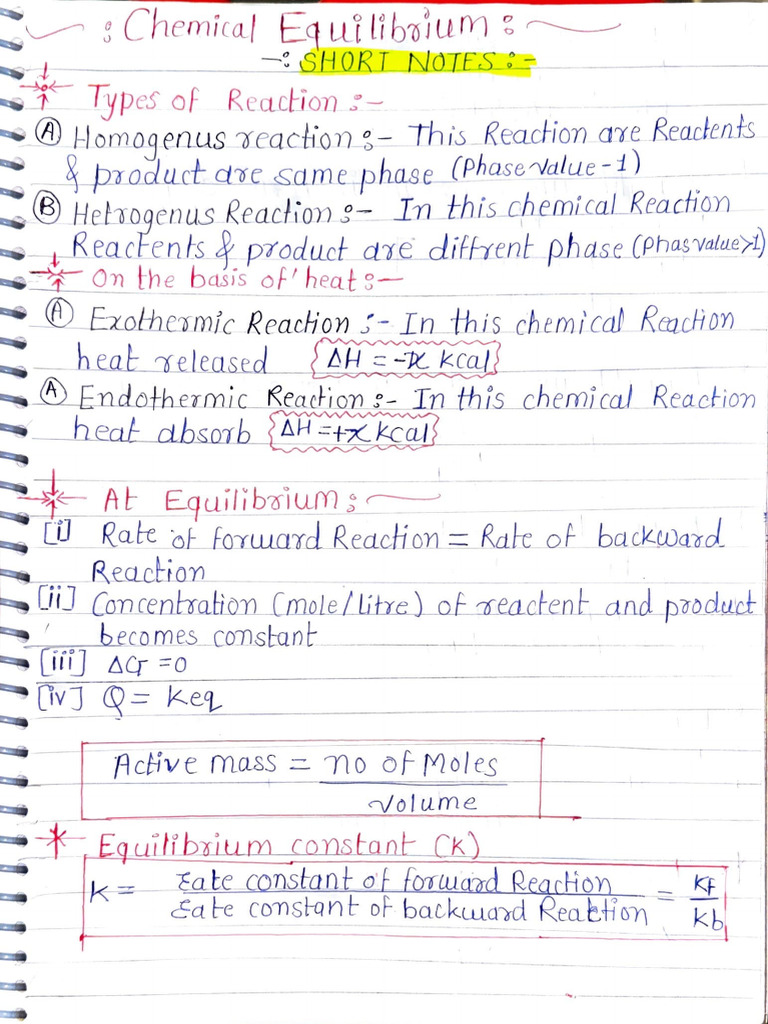 : Chemical Equilibrium :
-: SHORT NOTES :-
Types of Reaction :-
(A) Homogenus reaction :- This Reaction are Reactents
& product are same phase (Phase value - 1)
(B) Hetrogenus Reaction :- In this chemical Reaction
Reactents & product are diffrent phase (Phas value >1)
On the basis of heat :-
(A) Exothermic Reaction :- In this chemical Reaction
heat released ΔH = -x Kcal
(A) Endothermic Reaction :- In this chemical Reaction
heat absorb ΔH = +x Kcal
At Equilibrium :
[i] Rate of forward Reaction = Rate of backward
Reaction
[ii] Concentration (mole/litre) of reactent and product
becomes constant
[iii] ΔG = 0
[iv] Q = Keq
Active mass = no of Moles
Volume
* Equilibrium constant (K)
K = rate constant of forward Reaction = Kf
rate constant of backward Reaktion Kb